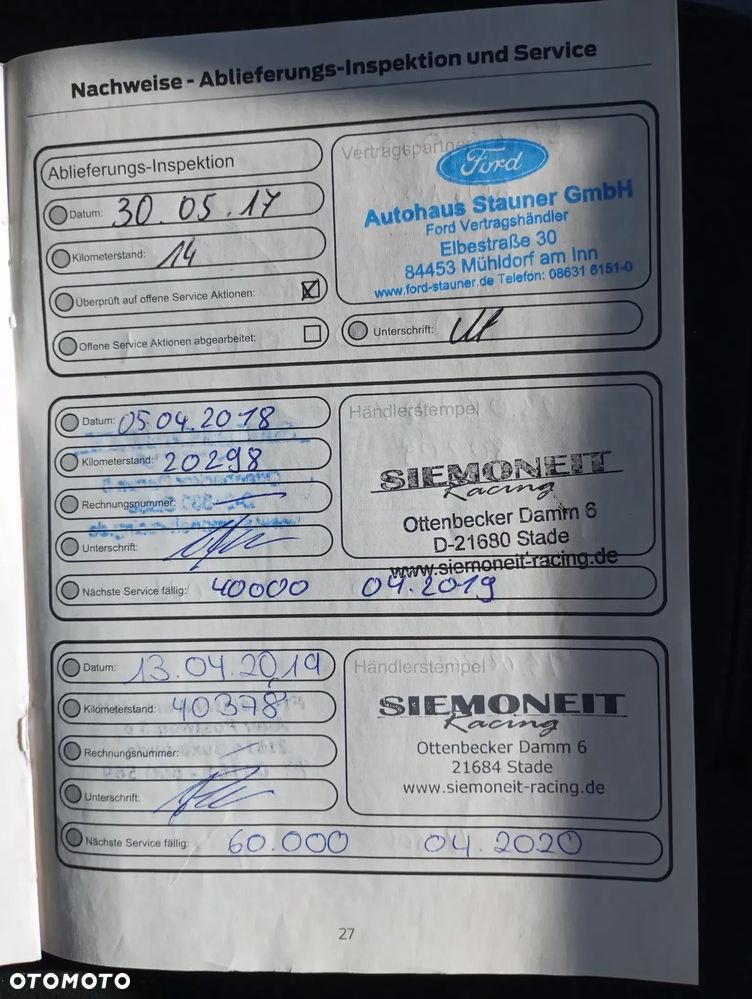 Nachweise - Ablieferungs-Inspektion und Service
Ablieferungs-Inspektion
Datum: 30.05.17
Kilometerstand: 14
Überprüft auf offene Service Aktionen:
Offene Service Aktionen abgearbeitet:
Vertragspartner
Ford
Autohaus Stauner GmbH
Ford Vertragshändler
Elbestraße 30
84453 Mühldorf am Inn
www.ford-stauner.de Telefon: 08631 6151-0
Unterschrift:
Datum: 05.04.2018
Kilometerstand: 20298
Rechnungsnummer:
Unterschrift:
Händlerstempel
SIEMONEIT
Racing
Ottenbecker Damm 6
D-21680 Stade
www.siemoneit-racing.de
Nächste Service fällig: 40000 04.2019
Datum: 13.04.2019
Kilometerstand: 40378
Rechnungsnummer:
Unterschrift:
Händlerstempel
SIEMONEIT
Racing
Ottenbecker Damm 6
21684 Stade
www.siemoneit-racing.de
Nächste Service fällig: 60.000 04.2020
27
OTOMOTO